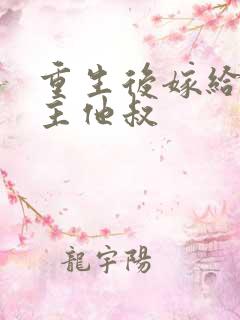 重生後嫁給
主他叔
龍宇陽